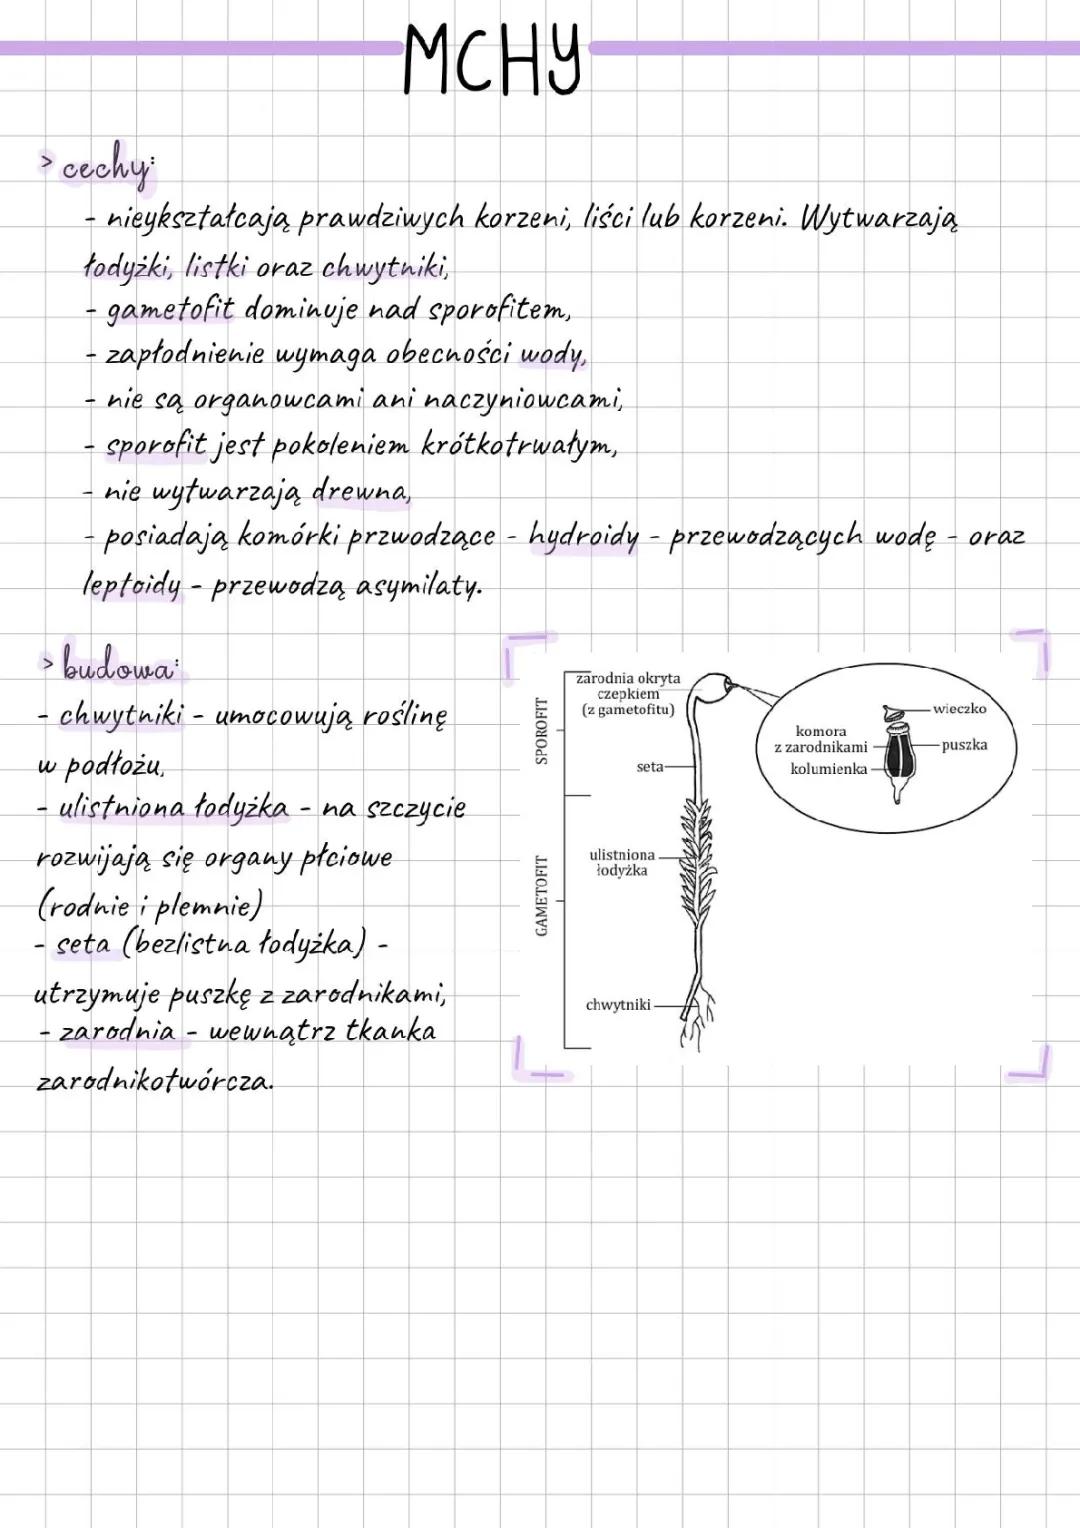 MCHY
> cechy:
- nieykształcają prawdziwych korzeni, liści lub korzeni. Wytwarzają
łodyżki, listki oraz chwytniki,
- gametofit dominuje nad sporofitem,
- zapłodnienie wymaga obecności wody,
- nie są organowcami ani naczyniowcami,
- sporofit jest pokoleniem krótkotrwałym,
- nie wytwarzają drewna,
- posiadają komórki przwodzące - hydroidy - przewodzących wodę - oraz
leptoidy - przewodzą asymilaty.
> budowa:
- chwytniki - umocowują roślinę
w podłożu,
- ulistniona łodyżka - na szczycie
rozwijają się organy płciowe
(rodnie i plemnie)
- seta (bezlistna łodyżka) -
utrzymuje puszkę z zarodnikami,
- zarodnia - wewnątrz tkanka
zarodnikotwórcza.
SPOROFIT
GAMETOFIT
zarodnia okryta
czepkiem
(z gametofitu)
seta
ulistniona
łodyżka
chwytniki
wieczko
komora
z zarodnikami
puszka
kolumienka